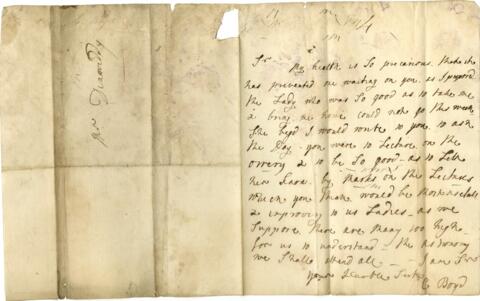 Mr Demainbray
Sr My health is So precarious that it
has prevented me waiting on you as I purposed
the Lady who was So good as to take me
& bring me home could not go this week
She begd I would write to you to ask
the Day you were to Lecture on the
orrery & to be So good as to Let
her know by the Lectures
which you think would be most usefull
& improving to us Ladies as we
Suppose there are many too high
for us to understand the
we Shall attend all I am Sr
your Humble Servt
C Boyd